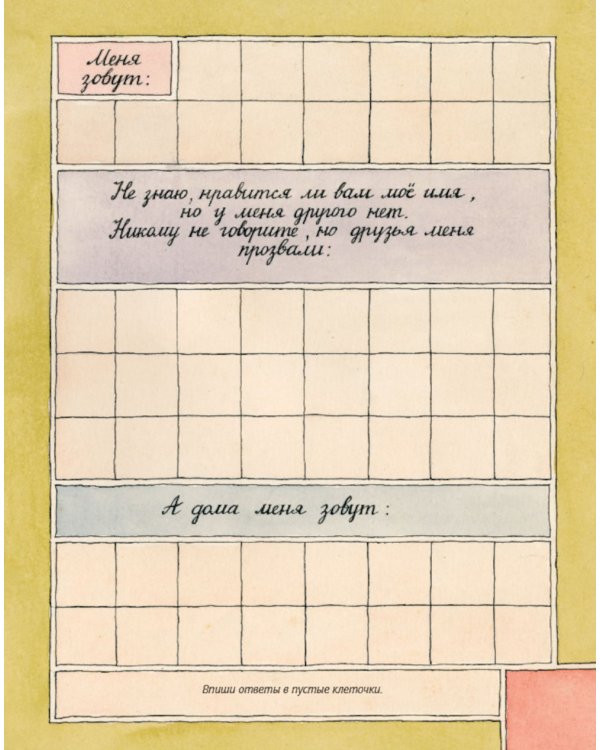 Меня
зовут:
Не знаю, нравится ли вам моё имя,
но у меня другого нет.
Никому не говорите, но друзья меня
прозвали:
А дома меня зовут:
Впиши ответы в пустые клеточки.